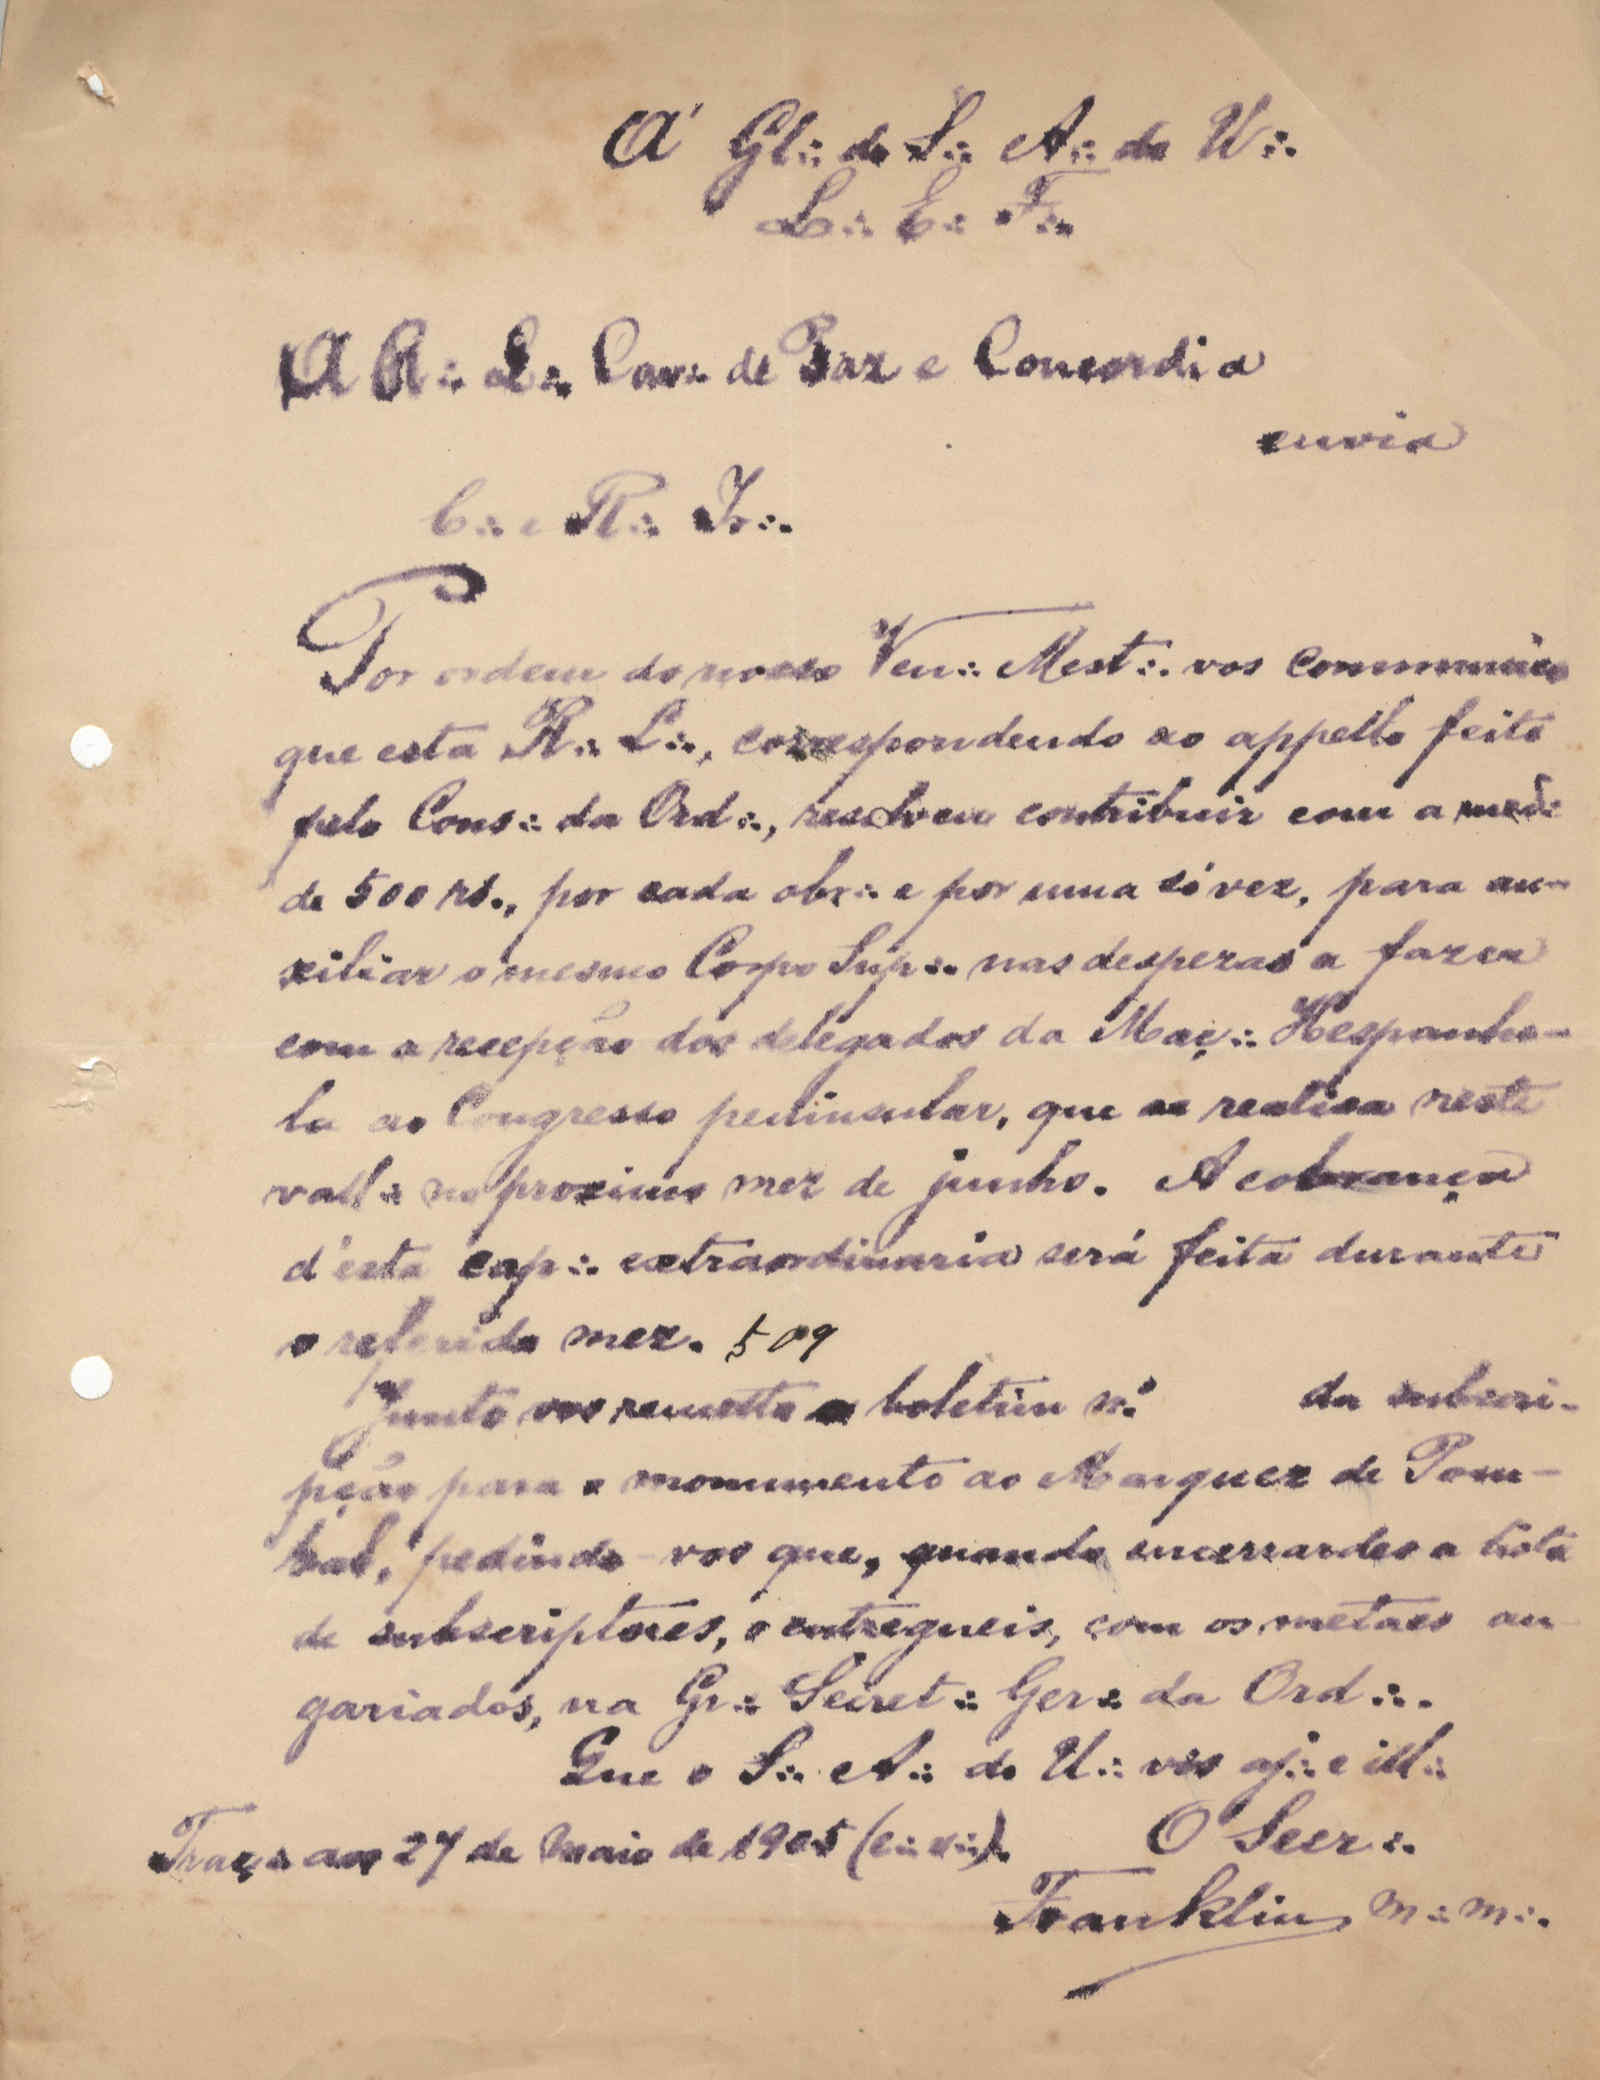 Á Gl∴ do S∴ A∴ do U∴
L∴ E∴ F∴
A R∴ L∴ Cav∴ de Paz e Concordia
envia
C∴ e R∴ Ir∴
Por ordem do nosso Ven∴ Mest∴ vos communico
que esta R∴ L∴, correspondendo ao appello feito
pelo Cons∴ da Ord∴, resolveu contribuir com a med∴
de 500 rs., por cada obr∴ e por uma só vez, para au-
xiliar o mesmo Corpo Sup∴ nas despezas a fazer
com a recepção dos delegados da Maç∴ Hespanho-
la ao Congresso peninsular, que se realisa neste
vall∴ no proximo mez de junho. A cobrança
d'esta cap∴ extraordinaria será feita durante
o referido mez. 509
Junto vos remetto o boletim n.º da subscri-
pção para o monumento ao Marquez de Pom-
bal, pedindo-vos que, quando encerrardes a lista
de subscriptores, o entregueis, com os metaes an
gariados, na Gr∴ Secret∴ Ger∴ da Ord∴.
Que o S∴ A∴ do U∴ vos aj∴ e ill∴
Traç∴ aos 27 de Maio de 1905 (e∴ v∴). O Secr∴
Franklin M∴ M∴